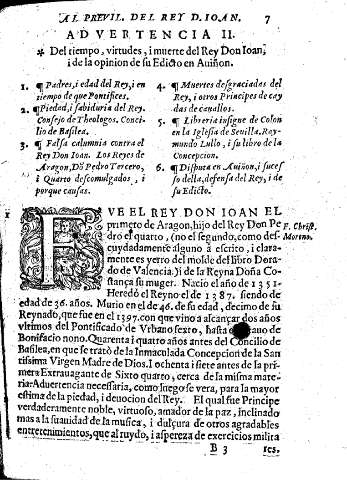 AL PREVIL. DEL REY D. IOAN. 7
ADVERTENCIA II.
* Del tiempo, virtudes, i muerte del Rey Don Ioan,
i de la opinion de su Edicto en Auiñon.
1. ¶ Padres, i edad del Rey, i en
tiempo de que Pontifices.
2. ¶ Piedad, i sabiduria del Rey.
Consejo de Theologos. Conci-
lio de Basilea.
3. ¶ Falsa calumnia contra el
Rey Don Ioan. Los Reyes de
Aragon, Dō Pedro Tercero,
i Quarto descomulgados, i
porque causas.
4. ¶ Muertes desgraciadas del
Rey, i otros Principes de cay
das de cauallos.
5. ¶ Libreria insigne de Colon
en la Iglesia de Seuilla. Ray-
mundo Lullo, i su libro de la
Concepcion.
6. ¶ Disputa en Auiñon, i suces
so della, defensa del Rey, i de
su Edicto.
1 FVE EL REY DON IOAN EL
primero de Aragon, hijo del Rey Don Pe
dro el quarto, (no el segundo, como des-
cuydadamente alguno à escrito, i clara-
mente es yerro del molde del libro Dora-
do de Valencia.) i de la Reyna Doña Cos-
tança su muger. Nacio el año de 1351
Heredó el Reyno el de 1387. siendo de
edad de 36. años. Murio en el de 46. de su edad, decimo de su
Reynado, que fue en 1397. con que vino a alcançar dos años
vltimos del Pontificado de Vrbano sexto, hasta el
Bonifacio nono. Quarenta i quatro años antes del Concilio de
Basilea, en que se tratò de la Inmaculada Concepcion de la San
tissima Virgen Madre de Dios. I ochenta i siete antes de la pri-
mera Extrauagante de Sixto quarto, cerca de la misma mate-
ria. Aduertencia necessaria, como luego se vera, para la mayor
estima de la piedad, i deuocion del Rey. El qual fue Principe
verdaderamente noble, virtuoso, amador de la paz, inclinado
mas a la suauidad de la musica, i dulçura de otros agradables
entretenimientos, que al ruydo, i aspereza de exercicios milita
F. Christ.
Moreno.
B 3 res.